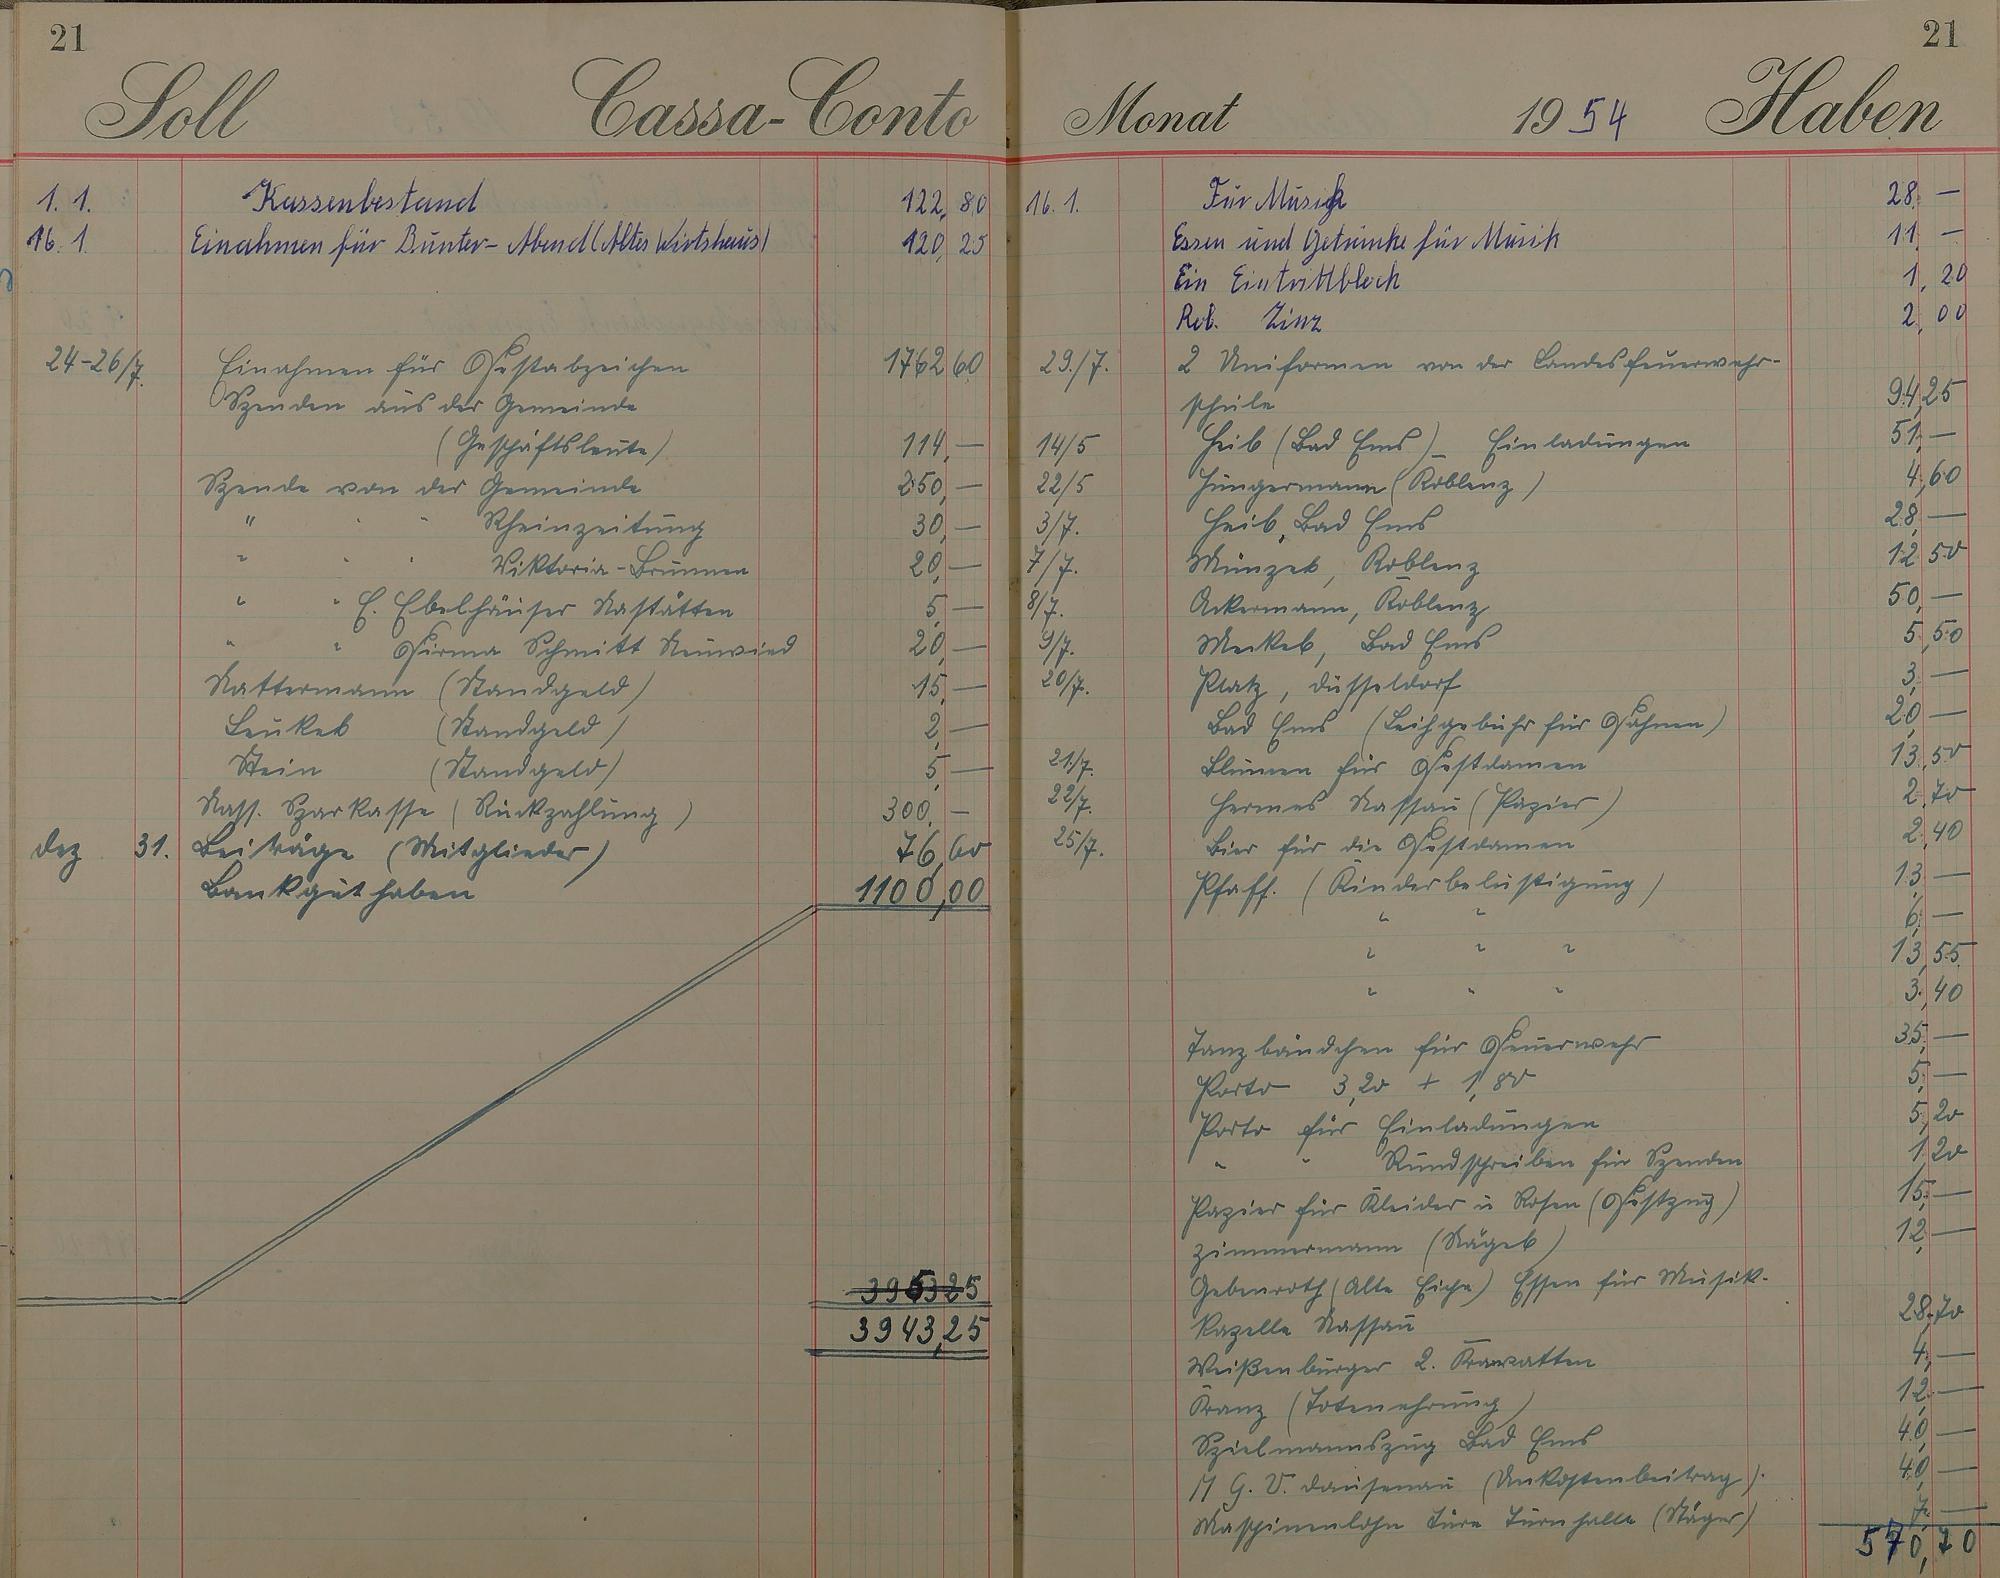 21
Soll Cassa-Conto
1. 1. Kassenbestand 122,80
16. 1. Einahmen für Bunter-Abend (Altes Wirtshaus) 120,25
24-26/7. Einahmen für Festabzeichen 1762 60
Spenden aus der Gemeinde
(Geschäftsleute) 114,—
Spende von der Gemeinde 250,—
" " " Rheinzeitung 30,—
" " " Viktoria-Brunnen 20,—
" " E. Ebelhäuser Nastätten 5,—
" " Firma Schmitt Neuwied 20,—
Nattermann (Standgeld) 15,—
Leukel (Standgeld) 2,—
Stein (Standgeld) 5,—
Nass. Sparkasse (Rückzahlung) 300,—
Dez 31. Beiträge (Mitglieder) 76,60
Bankguthaben 1100,00
3953 25
3943,25
21
Monat 1954 Haben
16. 1. Für Musik 28,—
Essen und Getränke für Musik 11,—
Ein Eintrittblock 1,20
Rob. Zinz 2,00
29./7. 2 Uniformen von der Landesfeuerwehr-
schule 94,25
14/5 Heib (Bad Ems) - Einladungen 51,—
22/5 Hüngermann (Koblenz) 4,60
3/7. Heib, Bad Ems 28,—
7/7. Münzel, Koblenz 12,50
8/7. Ackermann, Koblenz 50,—
9/7. Bad Ems 5,50
20/7. Platz, Düsseldorf 3,—
Bad Ems (Leihgebühr für Fahnen) 20,—
21./7. Blumen für Festdamen 13,50
22/7. Hermes Nassau (Papier) 2,70
25/7. Bier für die Festdamen 2,40
Pfaff. (Kinderbelustigung) 13,—
" " 6,—
" " " 13,55
" " " 3,40
Tanzbändchen für Feuerwehr 35,—
Porto 3,20 + 1,80 5,—
Porto für Einladungen 5,20
" " Rundschreiben für Spenden 1,20
Papier für Kleider u Rosen (Festzug) 15,—
Zimmermann (Nägel) 12,—
Gebenroth (Alte Eiche) Essen für Musik-
kapelle Nassau 28,70
Weißenburger 2. Krawatten 4,—
Kranz (Totenehrung) 12,—
Spielmannszug Bad Ems 40,—
M G. V. Dausenau (Unkostenbeitrag). 40,—
Maschinenlohn Türe Turnhalle (Stäger) 7,—
570,70